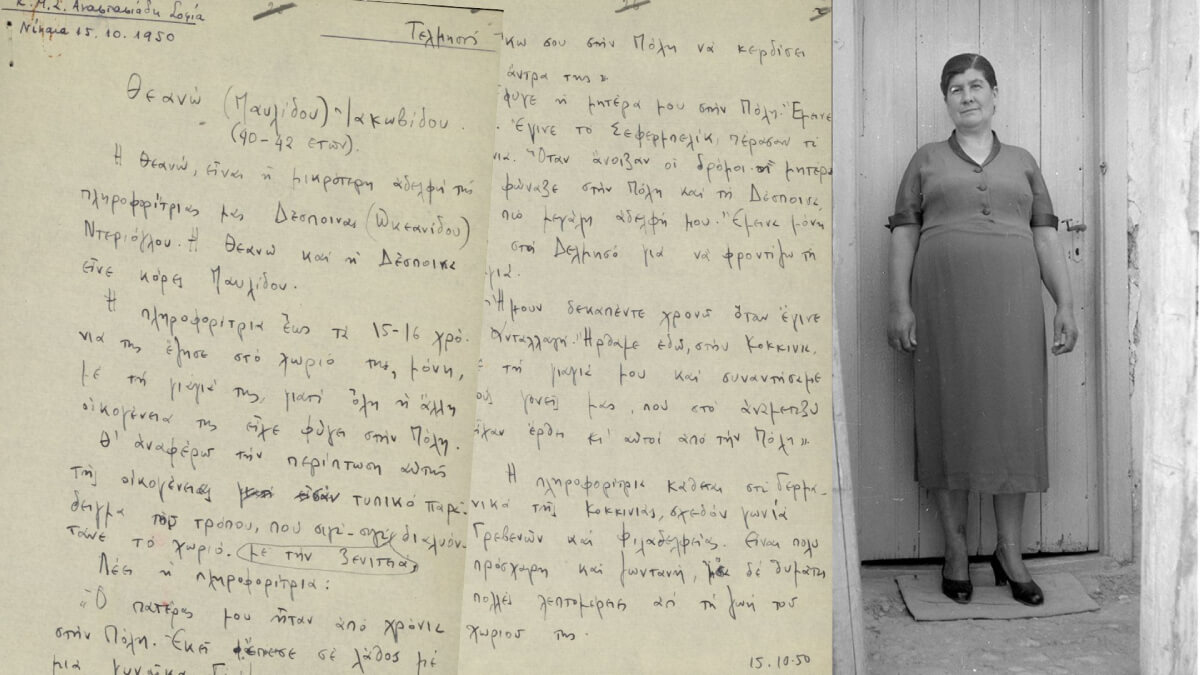 Κ.Μ.Σ. Αναστασιάδη Σοφία
Νίκαια 15.10.1950
Τελμησσός
Θεανώ (Μαυλίδου) Ιακωβίδου.
(40-42 ετών).
Ἡ Θεανώ, εἶναι ἡ μικρότερη ἀδελφή τῆς
πληροφορίτριας μας Δέσποινας (Ὠκεανίδου)
Ντεριόγλου. Ἡ Θεανώ καί ἡ Δέσποινα
εἶνε κόρες Μαυλίδου.
Ἡ πληροφορίτρια ἕως τά 15-16 χρό-
νια της ἔζησε στό χωριό της, μόνη,
μέ τή γιαγιά της, γιατί ὅλη ἡ ἄλλη
οἰκογένεια της εἶχε φύγει στήν Πόλη.
Θ' ἀναφέρω τήν περίπτωση αὐτῆς
τῆς οἰκογένειας τυπικό παρά-
δειγμα τοῦ τρόπου, πού σιγά-σιγά διαλυόν-
τανε τό χωριό. μέ τήν ξενιτειά
Λέει ἡ πληροφορίτρια:
«Ὁ πατέρας μου ἦταν ἀπό χρόνια
στήν Πόλη. Ἐκεῖ ἔπεσε σέ λάθος μέ
μιά γυναῖκα
σου στήν Πόλη νά κερδίσει
ἄντρα της»
ἔφυγε ἡ μητέρα μου στήν Πόλη. Ἔμεινε
Ἔγινε τό Σεφερμπελίκ, πέρασαν τά
Ὅταν ἄνοιξαν οἱ δρόμοι ἡ μητέρα
φώναξε στήν Πόλη καί τή Δέσποινα,
πιό μεγάλη ἀδελφή μου. Ἔμεινα μόνη
στή Δελμησό γιά νά φροντίζω τή
γιά.
Ἤμουν δεκαπέντε χρονῶ ὅταν ἔγινε
Ἀνταλλαγή. Ἤρθαμε ἐδῶ, στήν Κοκκινιά,
τή γιαγιά μου καί συναντήσαμε
τούς γονεῖς μας, πού στό ἀναμεταξύ
εἶχαν ἔρθει κι' αὐτοί ἀπό τήν Πόλη»
Ἡ πληροφορίτρια κάθεται στά Γερμα-
νικά τῆς Κοκκινιάς, σχεδόν γωνία
Γρεβενῶν καί Φιλαδελφείας. Εἶναι πολύ
πρόσχαρη καί ζωντανή, δέ θυμᾶται
πολλές λεπτομέρειες ἀπό τή ζωή τοῦ
χωριοῦ της.
15.10.50